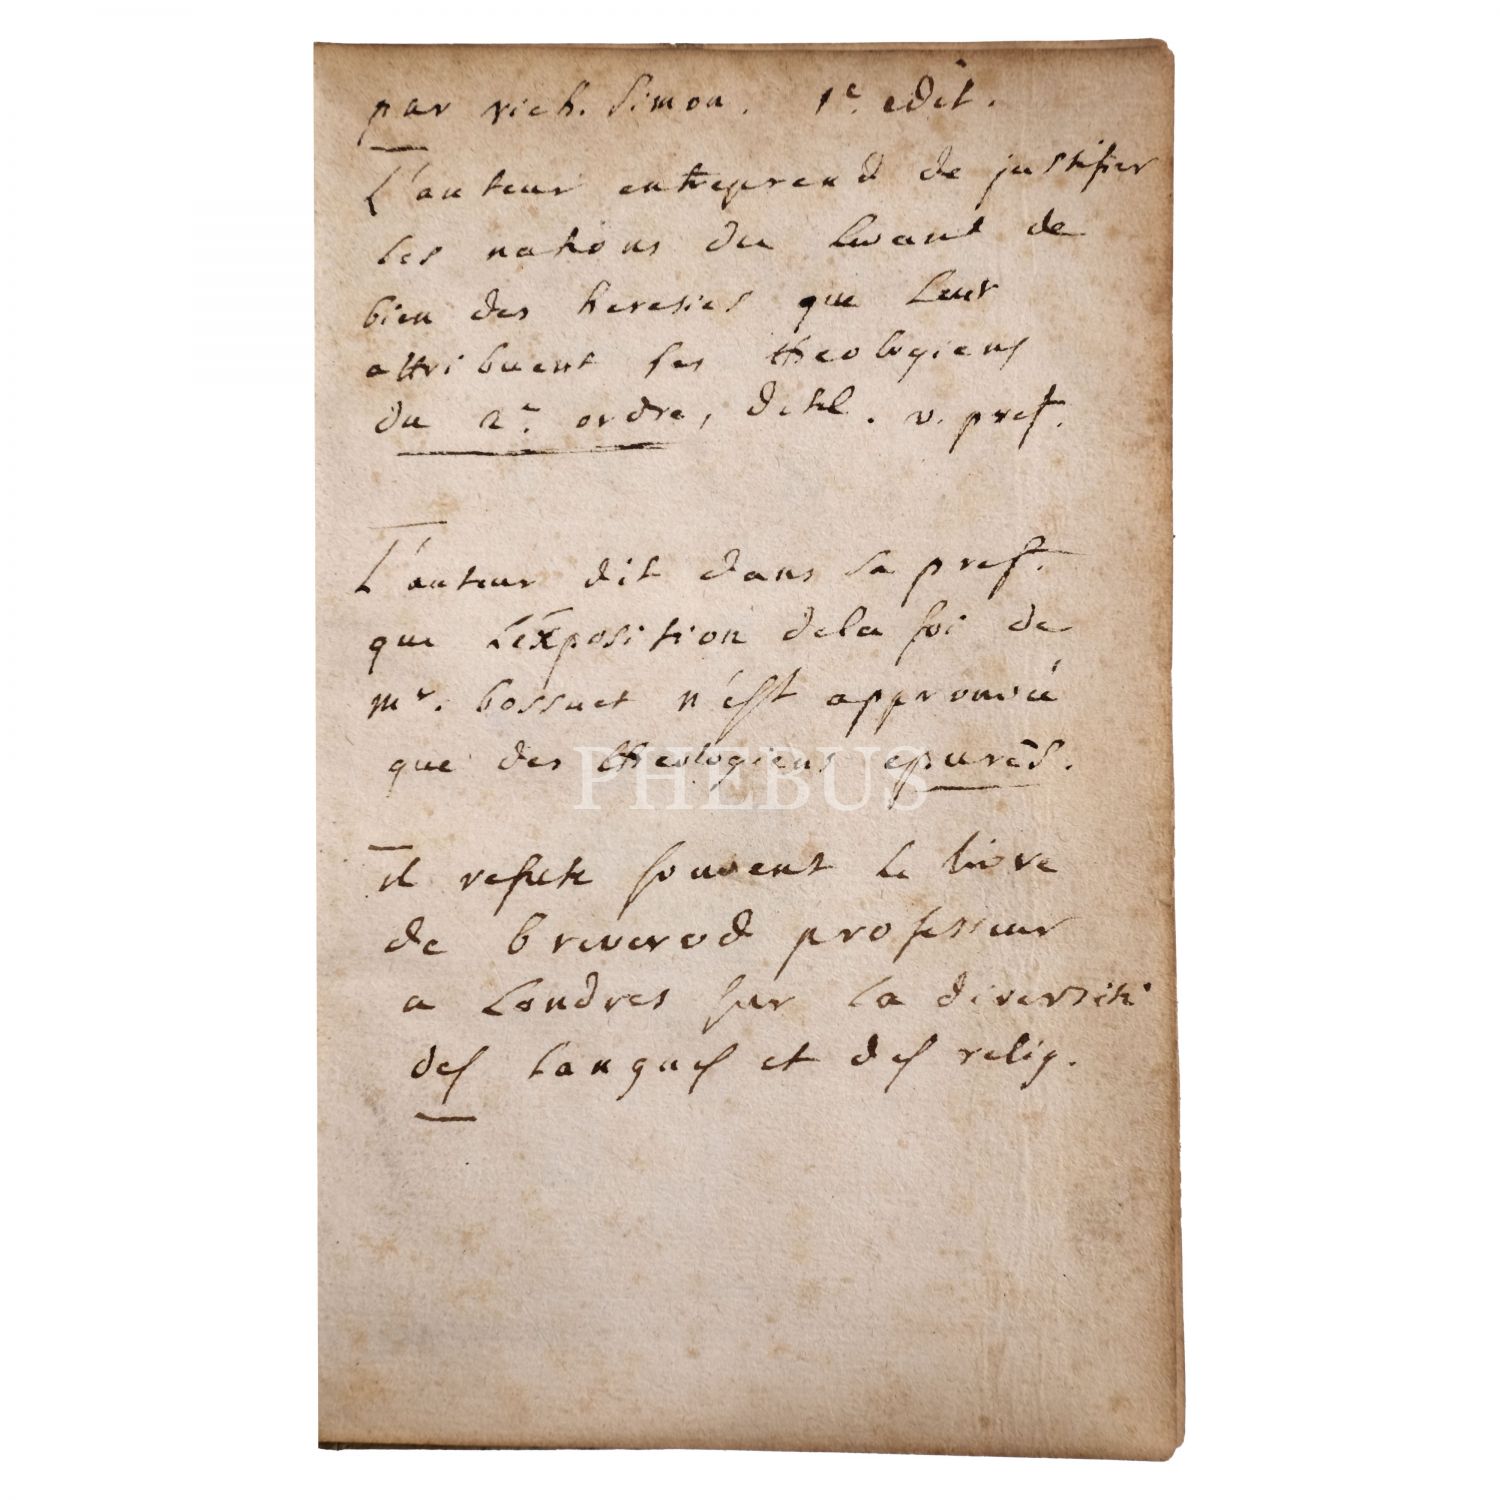 par rich. Simon. 1e. edit.
L'auteur entreprend de justifier
les nations du Levant de
bien des heresies que leur
attribuent les theologiens
du 2e. ordre, dit il. v. pref.
L'auteur dit dans sa pref.
que L'exposition dela foi de
mr. bossuet n'est approuvée
que des theologiens epurés.
PHEBUS
il refute souvent le livre
de breverod professeur
a Londres sur la diversité
des langues et des relig.